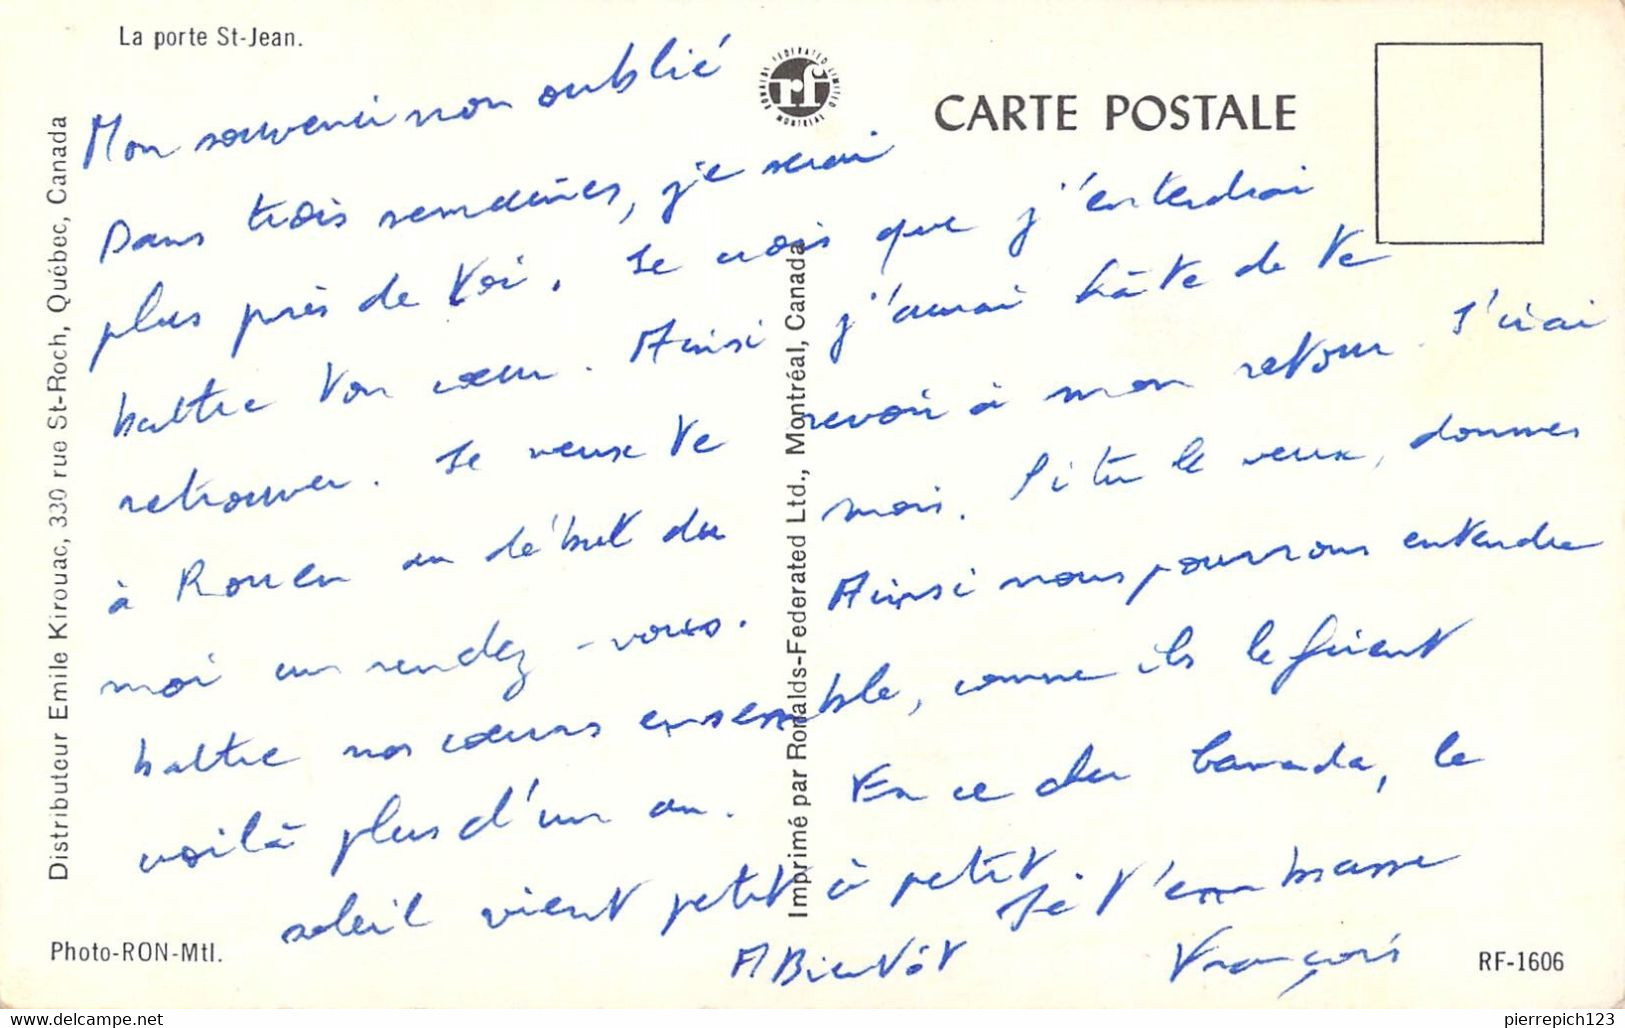 La porte St-Jean.
CARTE POSTALE
RONALDS FEDERATED LIMITED
rf
MONTREAL
Distributeur Emile Kirouac, 330 rue St-Roch, Québec, Canada
Imprimé par Ronalds-Federated Ltd., Montréal, Canada
Mon souvenir non oublié
Dans trois semaines, je serai
plus près de toi. Je crois que j'entendrai
battre ton cœur. Ainsi j'aurai hâte de te
retrouver. Je veux te revoir à mon retour. J'irai
à Rouen au début du mois. Si tu le veux, donnes
moi un rendez-vous. Ainsi nous pourrons entendre
battre nos cœurs ensemble, comme ils le firent
voilà plus d'un an. En ce cher Canada, le
soleil vient petit à petit
Je t'embrasse
A Bientôt
François
Photo-RON-Mtl.
RF-1606
© www.delcampe.net
pierrepich123